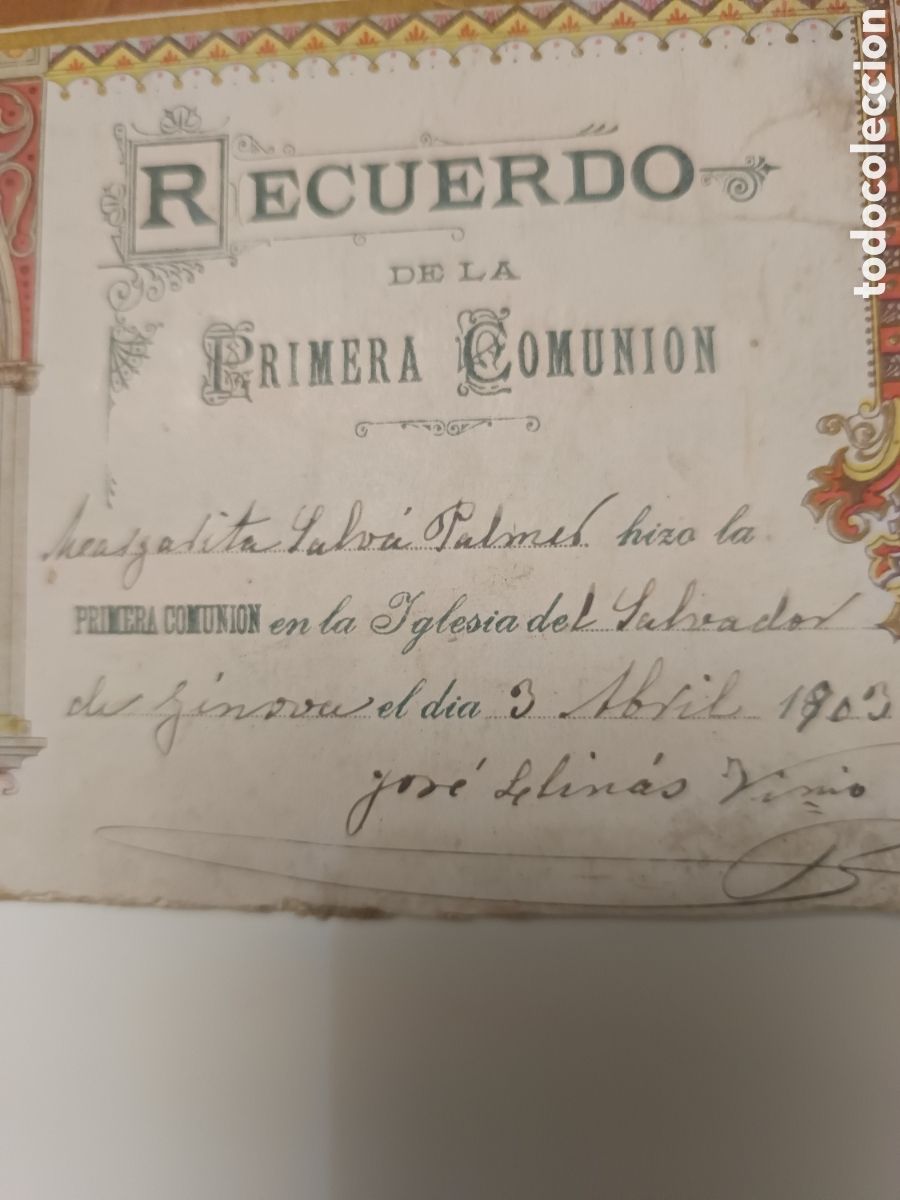 RECUERDO
DE LA
PRIMERA COMUNION
Margarita Salvá Palmer hizo la
PRIMERA COMUNION en la Iglesia del Salvador
de Génova el dia 3 Abril 1903
José Llinás
todocoleccion